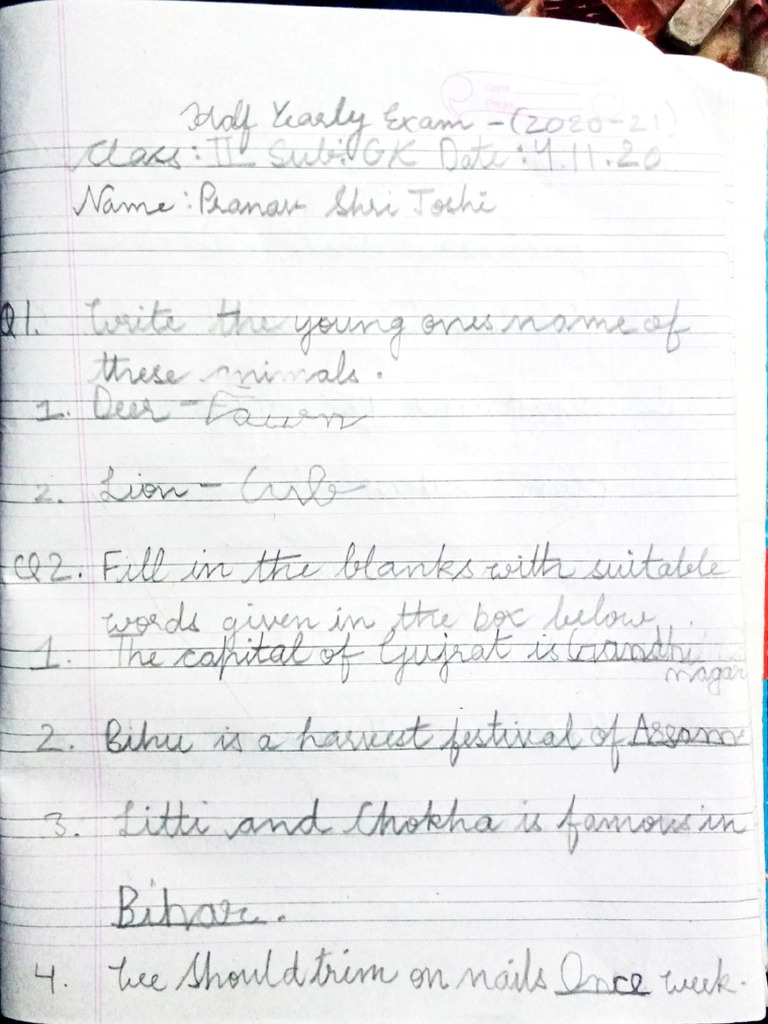 Half Yearly Exam - (2020-21)
Class: II Sub: GK Date: 4.11.20
Name: Pranav Shri Joshi
Q1. Write the young ones name of
these animals.
1. Deer - Fawn
2. Lion - Cub
Q2. Fill in the blanks with suitable
words given in the box below.
1. The capital of Gujrat is Gandhi
nagar
2. Bihu is a harvest festival of Assam
3. Litti and Chokha is famous in
Bihar.
4. We should trim on nails Once week.